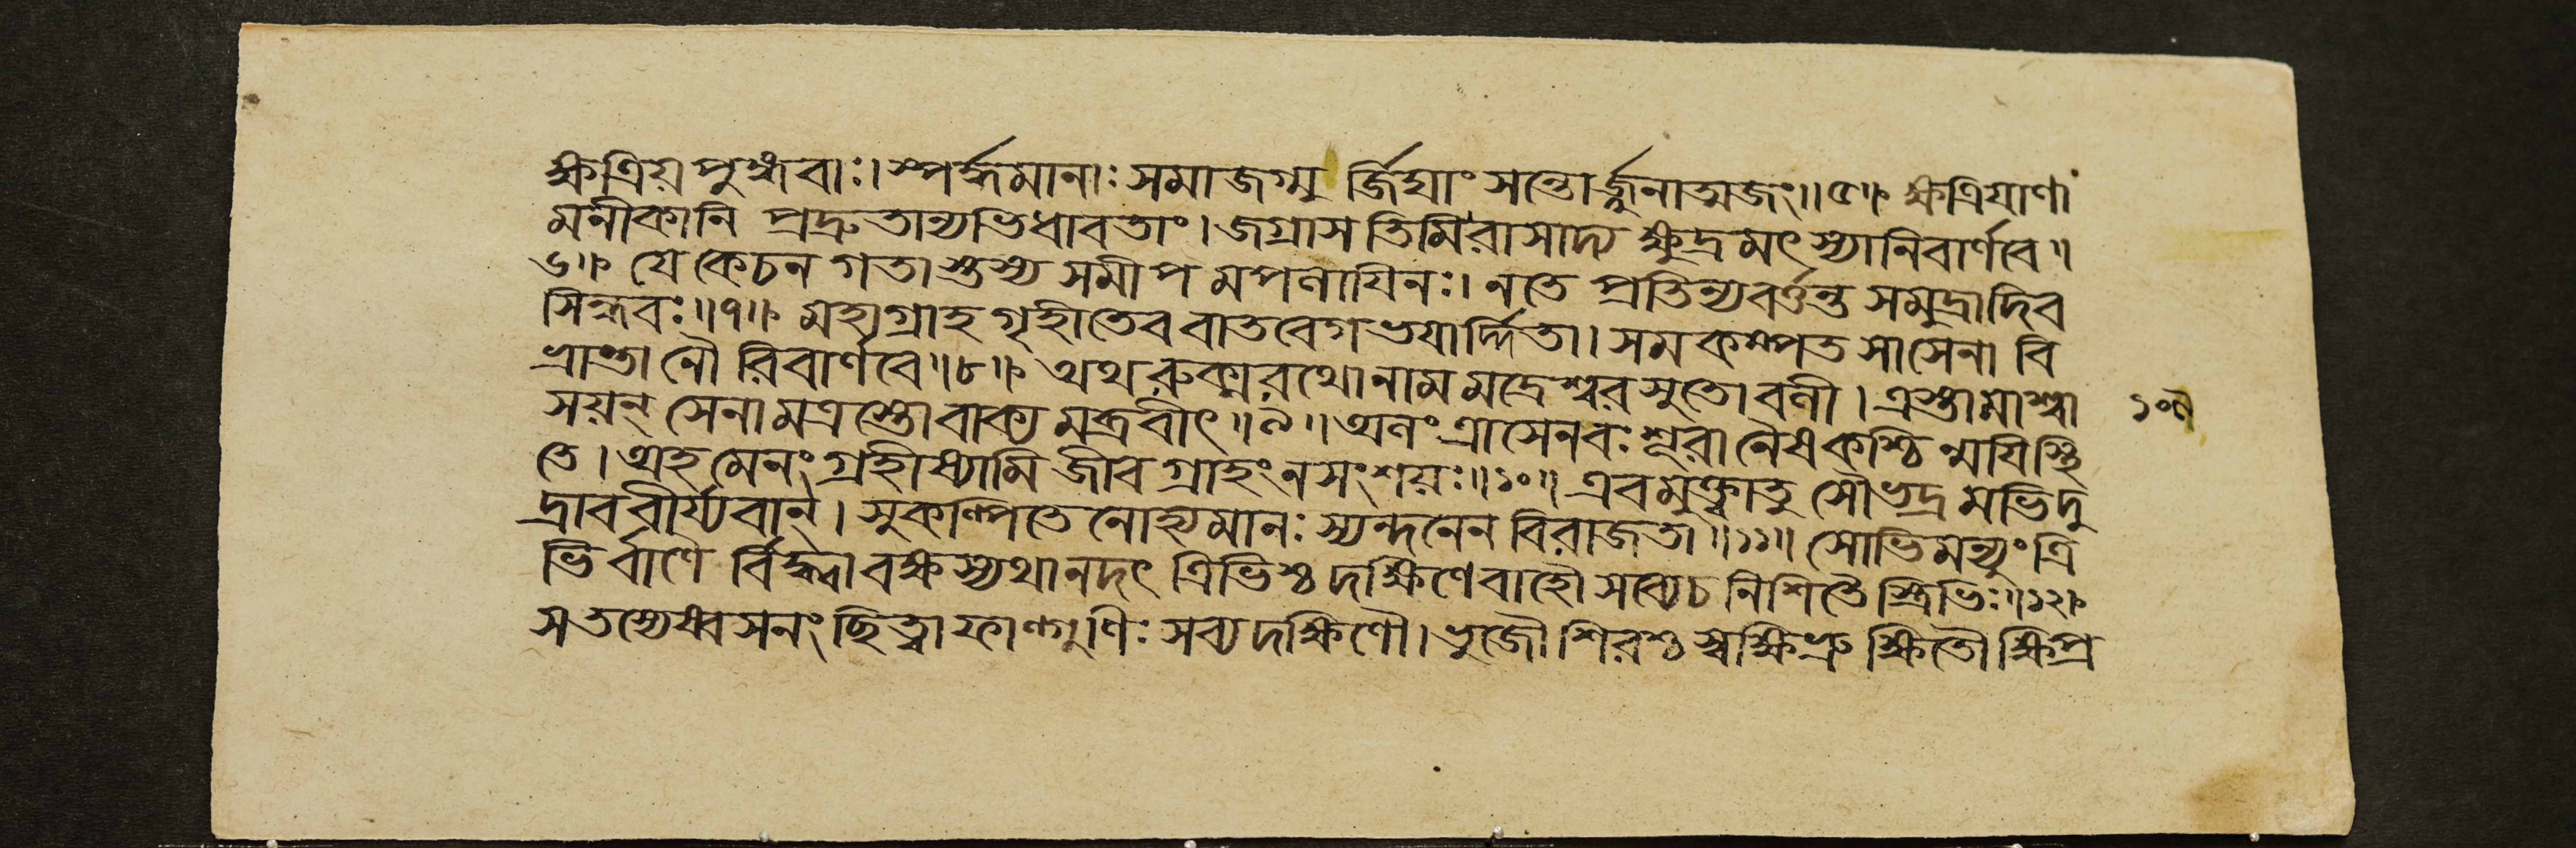 ক্ষত্রিয়পুঙ্গবাঃ। স্পর্দ্ধমানাঃ সমাজগ্মু র্জিঘাংসন্তোর্জ্জুনাত্মজং॥৫॥ ক্ষত্রিযাণা
মনীকানি প্রদ্রুতান্যভিধাবতাং। জগ্রাস তিমিরাসাদ্য ক্ষুদ্রমৎস্যানিবার্ণবে॥
৬॥ যে কেচন গতাস্তস্য সমীপ মপলাযিনঃ। নতে প্রতিন্যবর্ত্তন্ত সমুদ্রাদিব
সিন্ধবঃ॥৭॥ মহাগ্রাহ গৃহীতেব বাতবেগ ভযার্দ্দিতা। সমকম্পত সা সেনা বি
ভ্রাষ্টা নৌ রিবার্ণবে॥৮॥ অথ রুক্মরথোনাম মদ্রেশ্বর সুতোবলী। ত্রস্তামাশ্বা
সয়ন্ সেনা মত্রস্তোবাক্য মব্রবীৎ॥৯॥ অলং ত্রাসেনবঃ শূরা নৈষ কশ্চি ন্মযিস্থি
তে। অহ মেনং গ্রহীষ্যামি জীব গ্রাহং ন সংশয়ঃ॥১০॥ এবমুক্ত্বাতু সৌভদ্র মভিদু
দ্রাব বীর্য্যবান্। সুকল্পিতে নোহ্যমানঃ স্যন্দনেন বিরাজতা॥১১॥ সোভিমন্যুং ত্রি
ভির্বাণৈ র্বিদ্ধা বক্ষস্যথানদৎ ত্রিভিশ্চ দক্ষিণেবাহৌ সব্যেচ নিশিতৈ স্ত্রিভিঃ॥১২॥
সতস্যেষ্বসনং ছিত্বা ফাল্গুণিঃ সব্যদক্ষিণৌ। ভুজৌ শিরশ্চ স্বক্ষিভ্রু ক্ষিতৌ ক্ষিপ্র